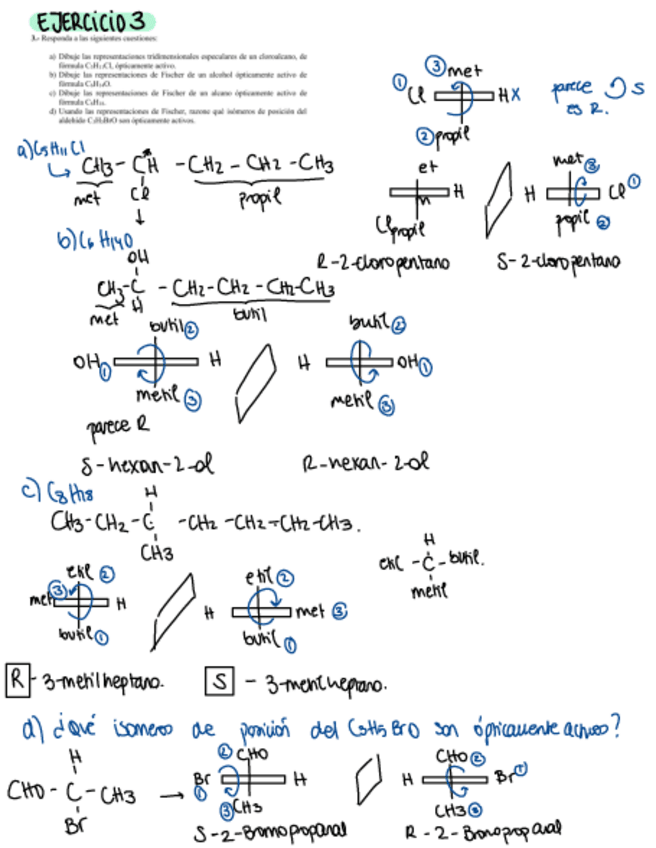 EJERCICIO 3
3.- Responda a las siguientes cuestiones:
a) Dibuje las representaciones tridimensionales especulares de un cloroalcano, de
fórmula C5H11Cl, ópticamente activo.
b) Dibuje las representaciones de Fischer de un alcohol ópticamente activo de
fórmula C6H14O.
c) Dibuje las representaciones de Fischer de un alcano ópticamente activo de
fórmula C8H18.
d) Usando las representaciones de Fischer, razone qué isómeros de posición del
aldehído C3H5BrO son ópticamente activos.
③ met
① Cl H X
② propil
parece S
es R.
a) C5H11Cl
CH3 - CH* - CH2 - CH2 - CH3
met Cl propil
et
H
Cl propil
R-2-cloropentano
met ③
H Cl ①
propil ②
S-2-cloropentano
b) C6H14O
OH
CH3 - C - CH2 - CH2 - CH2 - CH3
met H butil
butil ②
OH ① H
metil ③
parece R
S-hexan-2-ol
butil ②
H OH ①
metil ③
R-hexan-2-ol
c) C8H18
H
CH3 - CH2 - C - CH2 - CH2 - CH2 - CH3.
CH3
H
etil - C - butil.
metil
etil ②
met ③ H
butil ①
etil ②
H met ③
butil ①
R - 3-metilheptano.
S - 3-metilheptano.
d) ¿Qué isomeros de posición del C3H5BrO son ópticamente activos?
H
CHO - C - CH3
Br
② CHO
Br ① H
③ CH3
S-2-Bromopropanal
CHO ②
H Br ①
CH3 ③
R-2-Bromopropanal